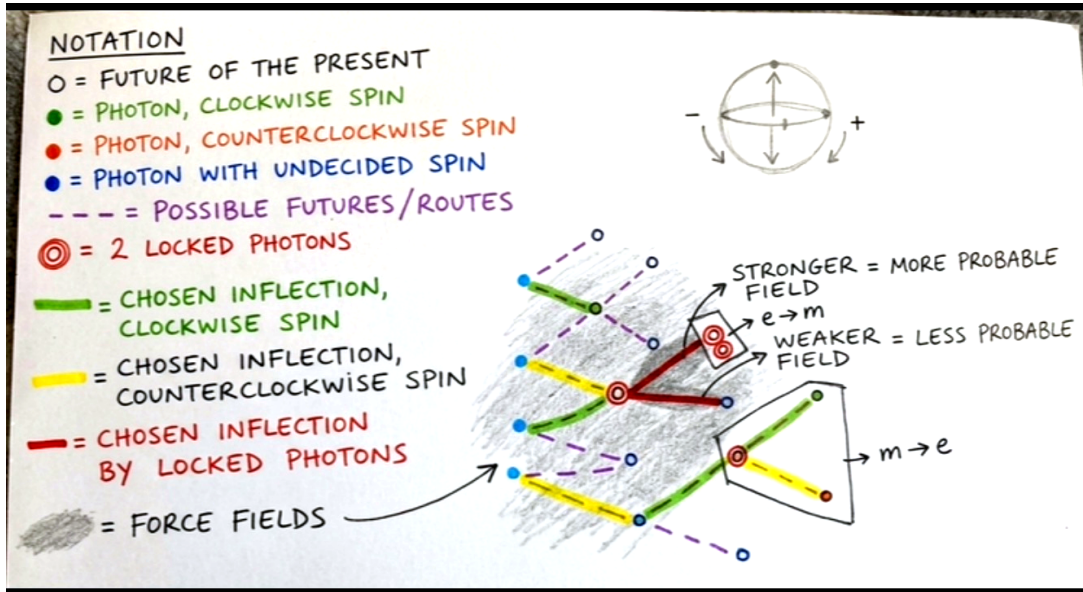 NOTATION
O = FUTURE OF THE PRESENT
= PHOTON, CLOCKWISE SPIN
= PHOTON, COUNTERCLOCKWISE SPIN
= PHOTON WITH UNDECIDED SPIN
--- = POSSIBLE FUTURES/ROUTES
= 2 LOCKED PHOTONS
= CHOSEN INFLECTION,
CLOCKWISE SPIN
= CHOSEN INFLECTION,
COUNTERCLOCKWISE SPIN
= CHOSEN INFLECTION
BY LOCKED PHOTONS
= FORCE FIELDS
- +
STRONGER = MORE PROBABLE
FIELD
e→m
WEAKER = LESS PROBABLE
FIELD
m→e